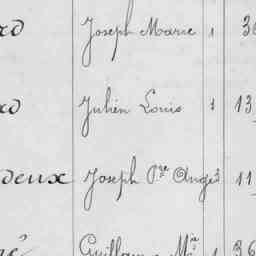 rd Joseph Marie 1 36
rd Julien Louis 1 13
deux Joseph Pre Ange 3 11
Guillaume Mie 1 36